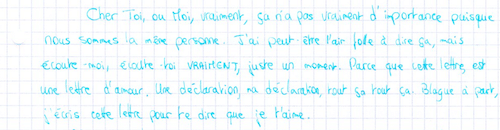 Cher Toi, ou Moi, vraiment, ça n'a pas vraiment d'importance puisque
nous sommes la même personne. J'ai peut-être l'air folle à dire ça, mais
écoute-moi, écoute-toi VRAIMENT, juste un moment. Parce que cette lettre, est
une lettre d'amour. Une déclaration, ma déclaration, tout ça tout ça. Blague à part,
j'écris cette lettre pour te dire que je t'aime.